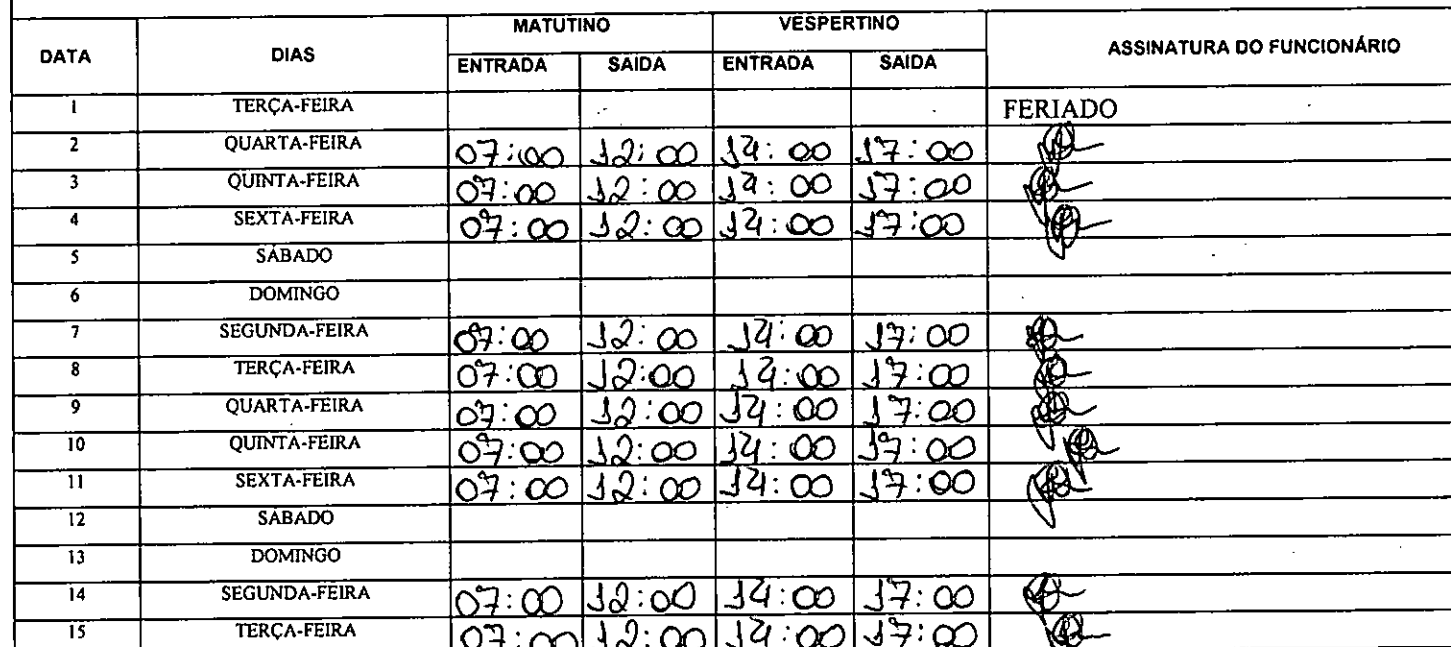 MATUTINO VESPERTINO
DATA DIAS ASSINATURA DO FUNCIONÁRIO
ENTRADA SAIDA ENTRADA SAIDA
1 TERÇA-FEIRA FERIADO
2 QUARTA-FEIRA 07:00 12:00 14:00 17:00
3 QUINTA-FEIRA 07:00 12:00 14:00 17:00
4 SEXTA-FEIRA 07:00 12:00 14:00 17:00
5 SÁBADO
6 DOMINGO
7 SEGUNDA-FEIRA 07:00 12:00 14:00 17:00
8 TERÇA-FEIRA 07:00 12:00 14:00 17:00
9 QUARTA-FEIRA 07:00 12:00 14:00 17:00
10 QUINTA-FEIRA 07:00 12:00 14:00 17:00
11 SEXTA-FEIRA 07:00 12:00 14:00 17:00
12 SÁBADO
13 DOMINGO
14 SEGUNDA-FEIRA 07:00 12:00 14:00 17:00
15 TERÇA-FEIRA 07:00 12:00 14:00 17:00